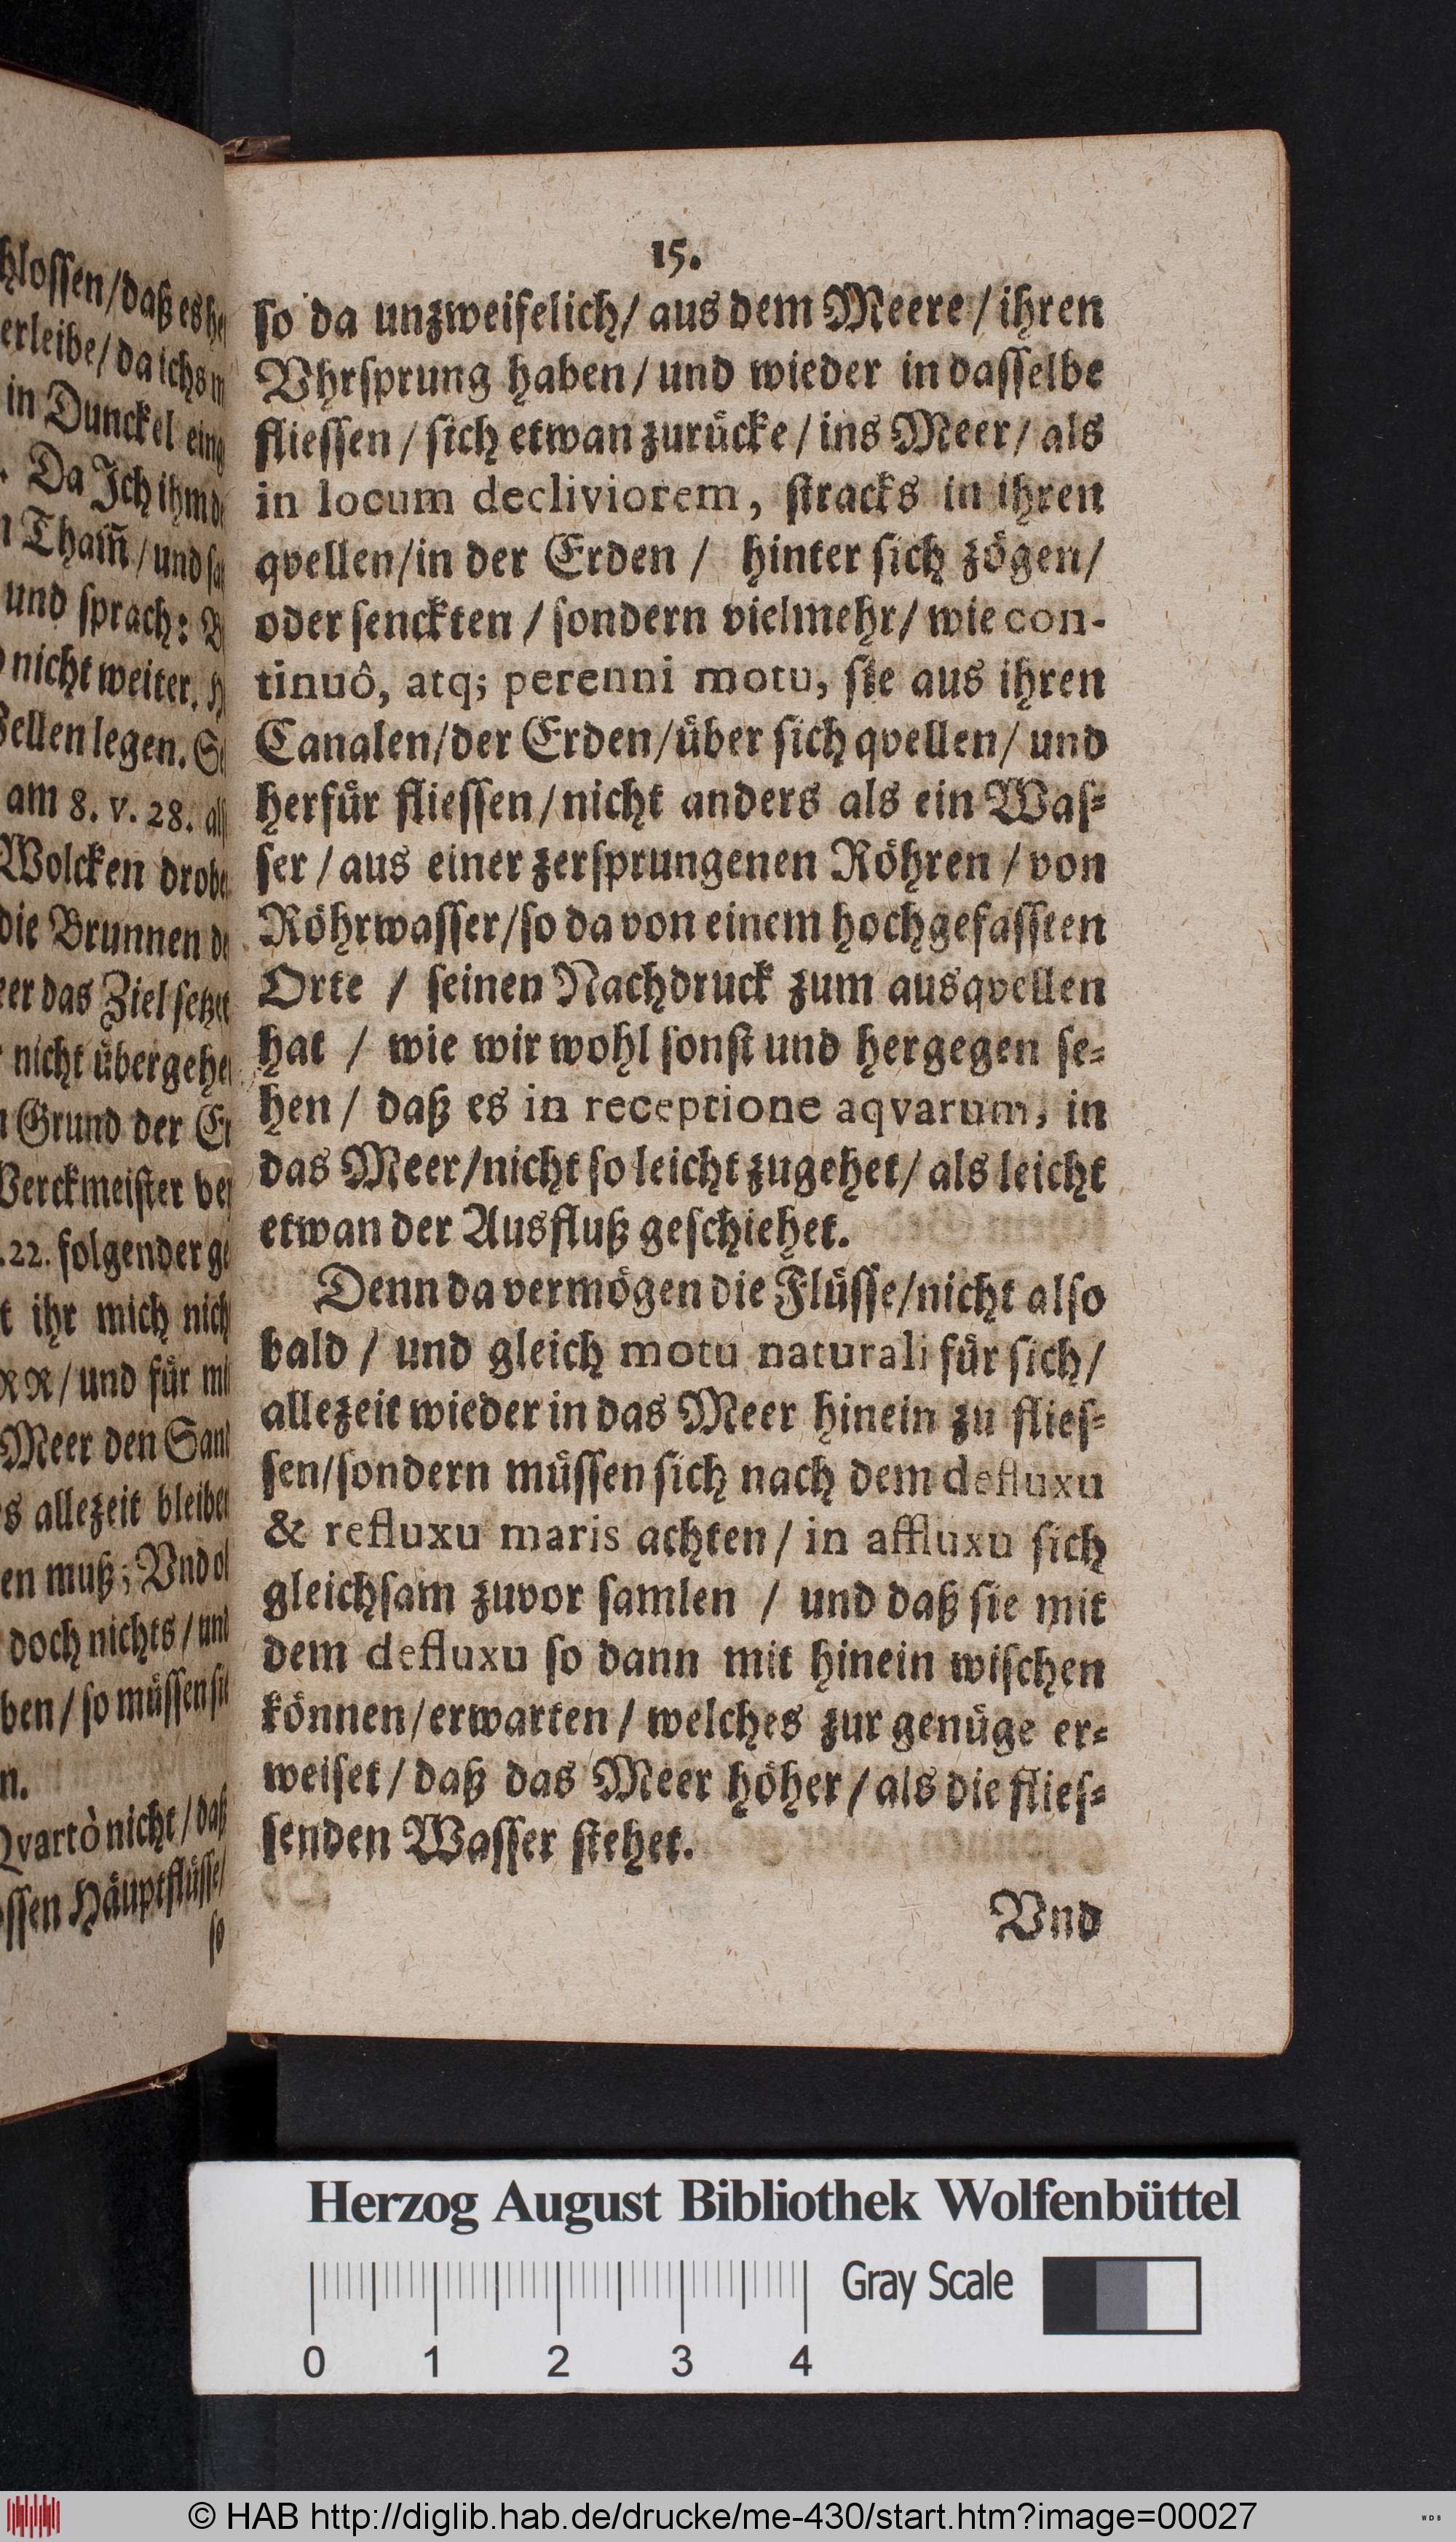 hlossen/daß es
erleibe/da ichs
in Dunckel
. Da Jch ihm
Tham̃/und
und sprach:
nicht weiter.
legen.
am 8. v. 28.
Wolcken
die Brunnen
das Ziel
nicht
Grund der

.22. folgender
ihr mich
/und für
Meer den
allezeit
muß; Vnd
doch nichts/
/so müssen
n.
Qvartò nicht/daß
ssen Häuptflüsse/
so
15.
so da unzweifelich/ aus dem Meere/ ihren
Vhrsprung haben/ und wieder in dasselbe
fliessen/ sich etwan zurücke/ ins Meer/ als
in locum decliviorem, stracks in ihren
qvellen/in der Erden / hinter sich zögen/
oder senckten / sondern vielmehr/ wie con-
tinuô, atq; perenni motu, sie aus ihren
Canalen/der Erden/über sich qvellen/ und
herfür fliessen/nicht anders als ein Was-
ser / aus einer zersprungenen Röhren / von
Röhrwasser/so da von einem hochgefassten
Orte / seinen Nachdruck zum ausqvellen
hat / wie wir wohl sonst und hergegen se-
hen / daß es in receptione aqvarum, in
das Meer/nicht so leicht zugehet/ als leicht
etwan der Ausfluß geschiehet.
Denn da vermögen die Flüsse/nicht also
bald / und gleich motu naturali für sich/
allezeit wieder in das Meer hinein zu flies-
sen/sondern müssen sich nach dem defluxu
& refluxu maris achten/ in affluxu sich
gleichsam zuvor samlen / und daß sie mit
dem defluxu so dann mit hinein wischen
können/erwarten / welches zur genüge er-
weiset/ daß das Meer höher / als die flies-
senden Wasser stehet.
Vnd
Herzog August Bibliothek Wolfenbüttel
Gray Scale
0 1 2 3 4
© HAB http://diglib.hab.de/drucke/me-430/start.htm?image=00027